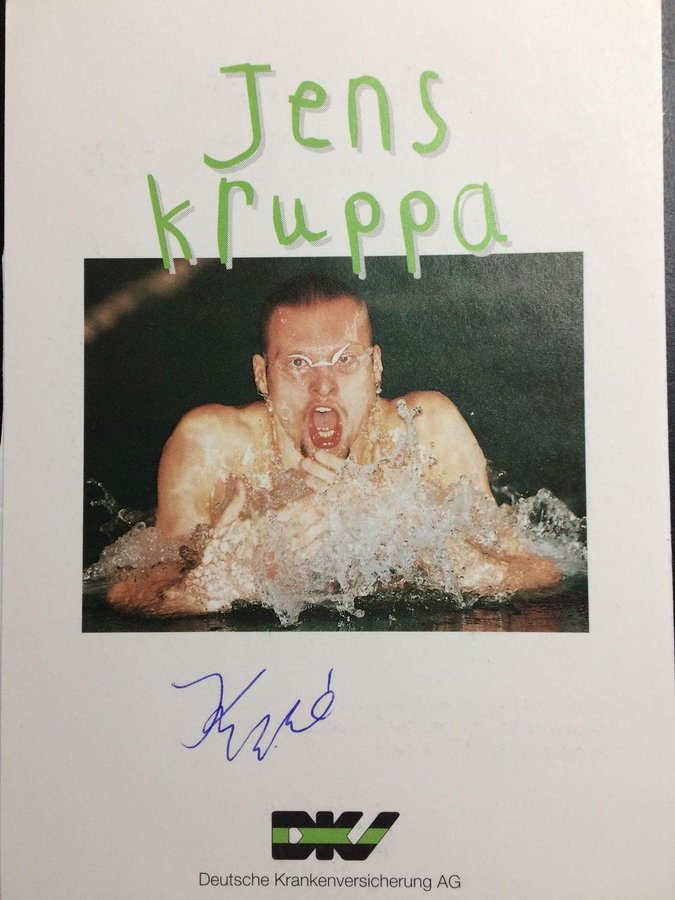 Jens
kruppa
DKV
Deutsche Krankenversicherung AG